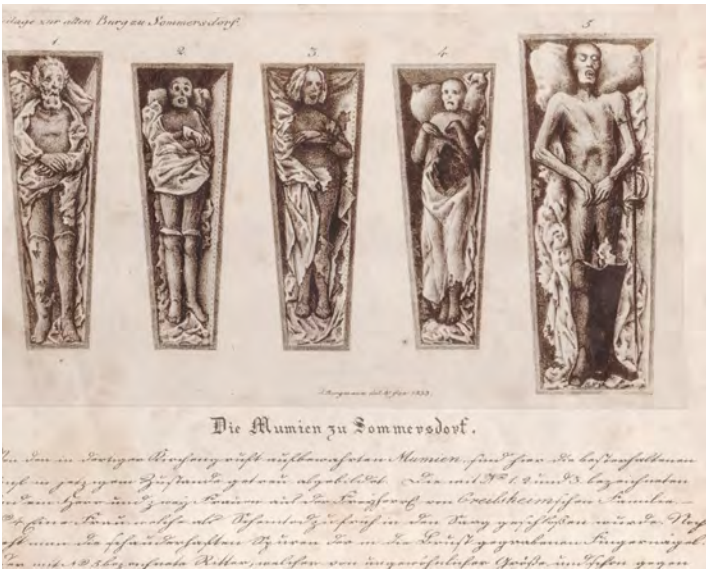 lage zur alten Burg zu Sommersdorf.
1 2 3 4 5
Bergmann del. & fec. 1833.
Die Mumien zu Sommersdorf.
den in dortiger Kirchengruft aufbewahrten Mumien, sind hier die besterhaltenen
in jetzigem Zustande getreu abgebildet. Die mit No 1. 2. und 3. bezeichneten
Herr und zwei Frauen aus der Freiherrl. von Creilsheimschen Familie.
No 4 Eine Frau welche als Scheintod zu früh in den Sarg geschloßen wurde. Noch
man die schauderhaften Spuren der in die Brust gegrabenen Fingernägel.
mit No 5 bezeichnete Ritter, welcher von ungewöhnlicher Größe und schon gegen